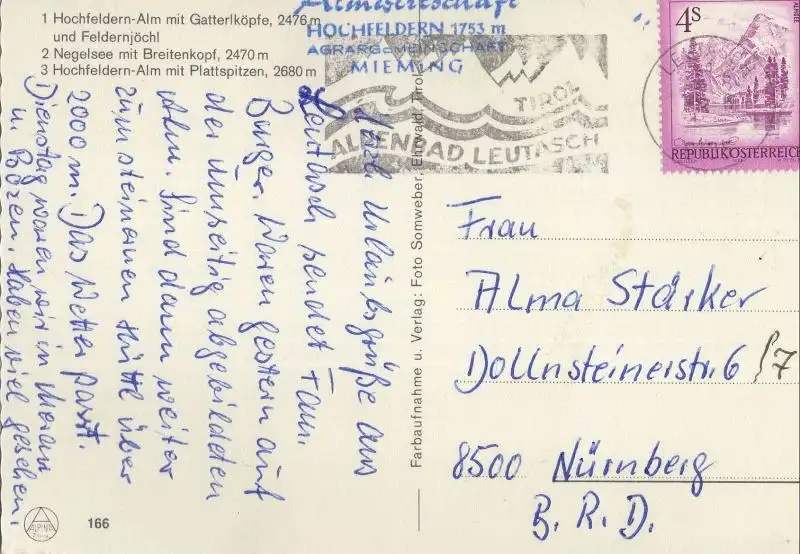 1 Hochfeldern-Alm mit Gatterlköpfe, 2476 m
und Feldernjöchl
2 Negelsee mit Breitenkopf, 2470 m
3 Hochfeldern-Alm mit Plattspitzen, 2680 m
Almwirtschaft
HOCHFELDERN 1753 m
AGRARGEMEINSCHAFT
MIEMING
TIROL
ALPENBAD LEUTASCH
4S
REPUBLIK ÖSTERREICH
Herzl. Urlaubsgrüße aus
Leutasch sendet Fam.
Burger. Waren gestern auf
der umseitig abgebildeten
Alm. Sind dann weiter
zum steinernen Hüttl über
2000 m. Das Wetter passt.
Dienstag waren wir in Meran
in Bozen. Haben viel gesehen.
Farbaufnahme u. Verlag: Foto Somweber, Ehrwald, Tirol
Frau
Alma Stärker
Dollnsteinerstr. 6 /7
8500 Nürnberg
B. R. D.
ALPINA
166